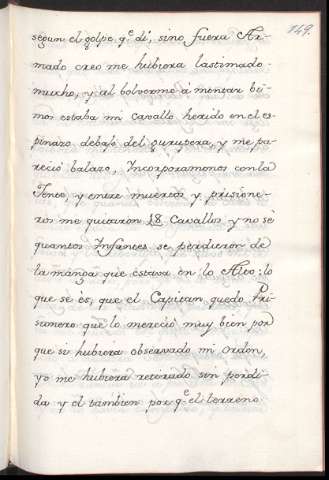 149.
segun el golpe q.e di, sino fuera Ar-
mado creo me hubiera lastimado
mucho, y al bolverme à montar bi-
mos estaba mi cavallo herido en el es-
pinazo debajo del gurupera, y me pa-
reciò balazo, Incorporamonos con la
Jente, y entre muertos y prisione-
ros me quitaron 18 Cavallos y no sè
quantos Infantes se perdieron de
la manga que estava en lo Alto: lo
que sè es, que el Capitan quedo Pri-
sionero que lo mereciò muy bien por
que si hubiera observado mi orden,
yo me hubiera retirado sin perdi-
da y el tambien por q.e el terreno